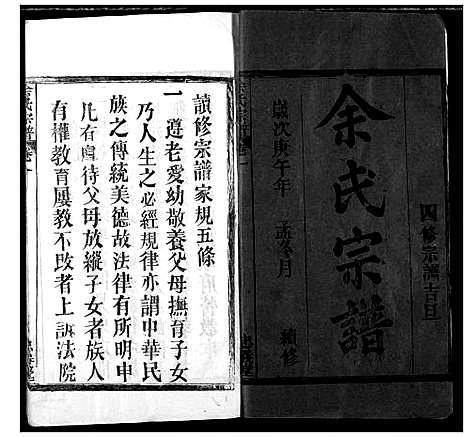 四修宗譜吉旦
余氏宗譜
歲次庚午年 孟冬月 續修
余氏宗譜 卷一
續修宗譜家規五條
一 尊老愛幼敬養父母撫育子女
乃人生之必經規律亦謂中華民
族之傳統美德故法律有所明申
凡有虐待父母放縱子女者族人
有權教育屢教不改者上訴法院